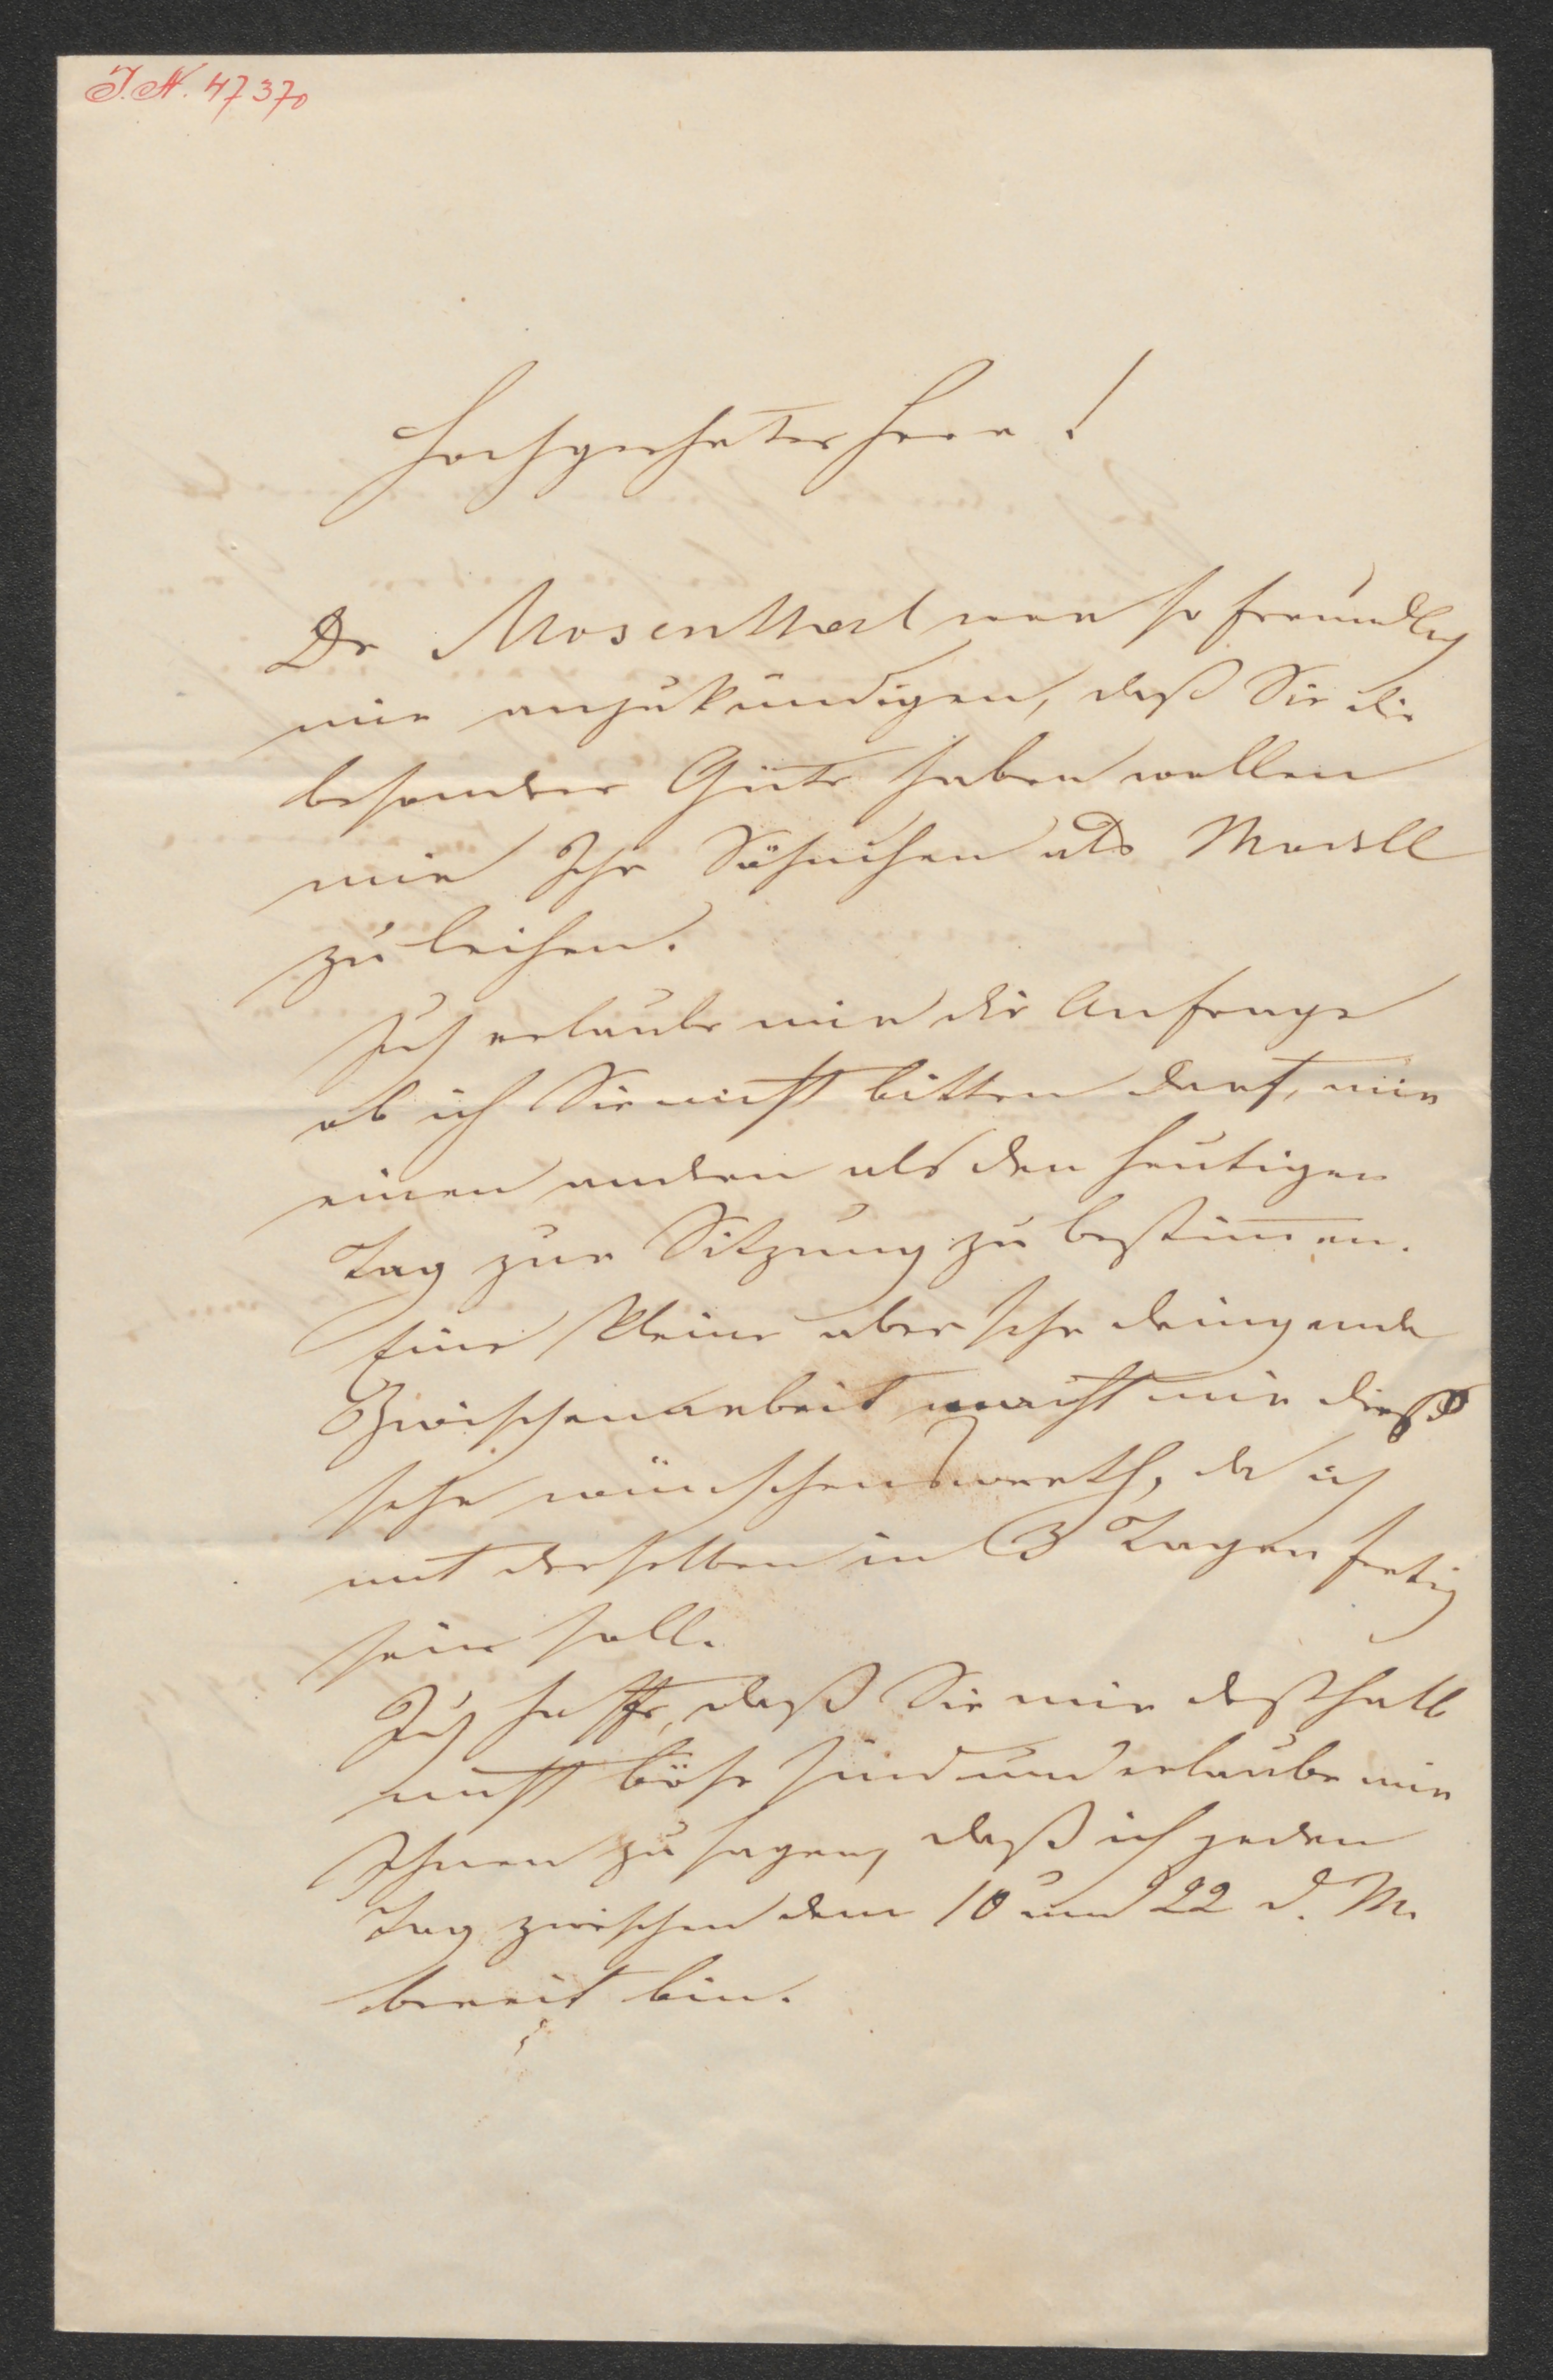 J.N. 47370
Hochgeehrter Herr!
Dr Mosenthal war so freundlich
mir anzukündigen, daß Sie die
besondere Güte haben wollen
mir Ihr Söhnchen als Modell
zu leihen.
Ich erlaube mir die Anfrage
ob ich Sie nicht bitten darf, mir
einen andern als den heutigen
Tag zur Sitzung zu bestim̅en.
Eine kleine aber sehr dringende
Zwischenarbeit macht mir dieß
sehr wünschenswerth, da ich
mit derselben in 3 Tagen fertig
sein soll.
Ich hoffe, daß Sie mir deßhalb
nicht böse sind und erlaube mir
Ihnen zu sagen, daß ich jeden
Tag zwischen dem 10 und 22 d. M.
bereit bin.